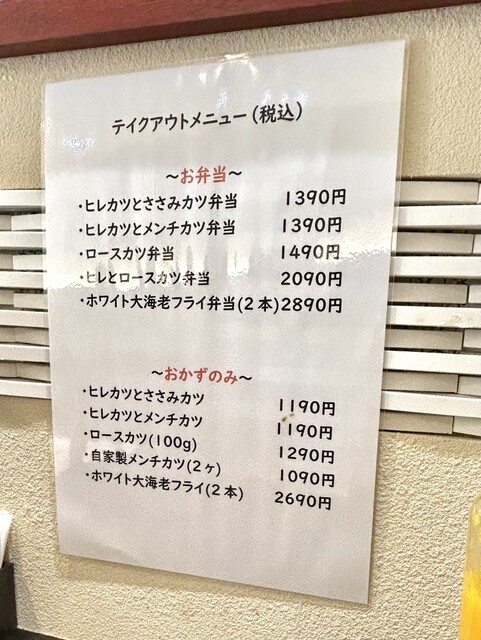 テイクアウトメニュー(税込)
～お弁当～
・ヒレカツとささみカツ弁当 1390円
・ヒレカツとメンチカツ弁当 1390円
・ロースカツ弁当 1490円
・ヒレとロースカツ弁当 2090円
・ホワイト大海老フライ弁当(2本)2890円
～おかずのみ～
・ヒレカツとささみカツ 1190円
・ヒレカツとメンチカツ 1190円
・ロースカツ(100g) 1290円
・自家製メンチカツ(2ヶ) 1090円
・ホワイト大海老フライ(2本) 2690円